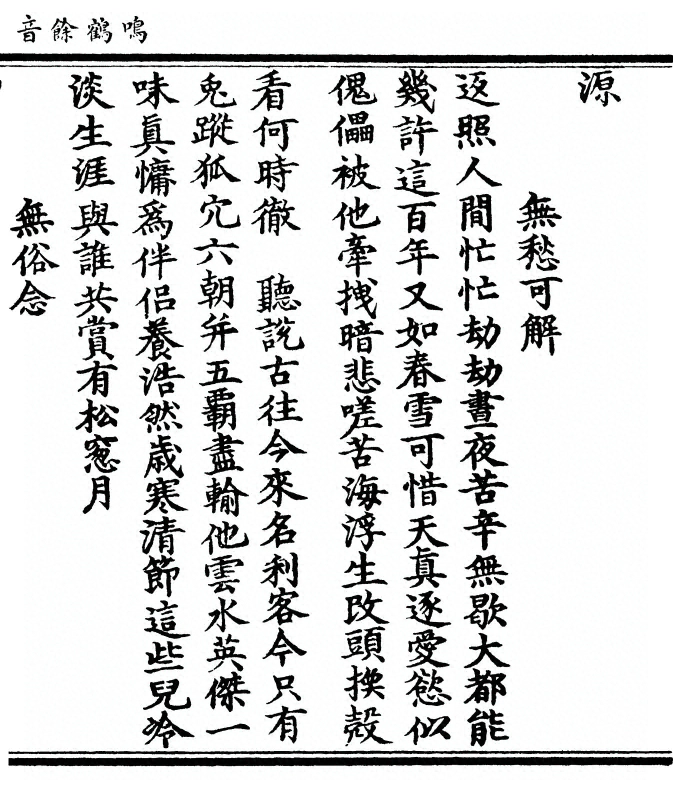 鳴鶴餘音
源
無愁可解
返照人間忙忙劫劫晝夜苦辛無歇大都能
幾許這百年又如春雪可惜天真逐愛慾似
傀儡被他牽拽暗悲嗟苦海浮生改頭換殼
看何時徹　聽說古往今來名利客今只有
兎蹤狐穴六朝并五霸盡輸他雲水英傑一
味真慵爲伴侣養浩然歳寒清節這些兒冷
淡生涯與誰共賞有松窓月
無俗念